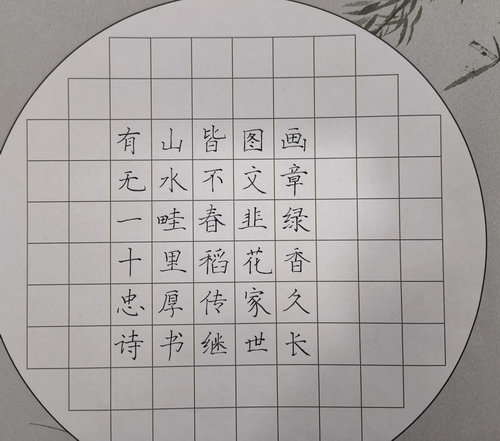 有山皆图画
无水不文章
一畦春韭绿
十里稻花香
忠厚传家久
诗书继世长